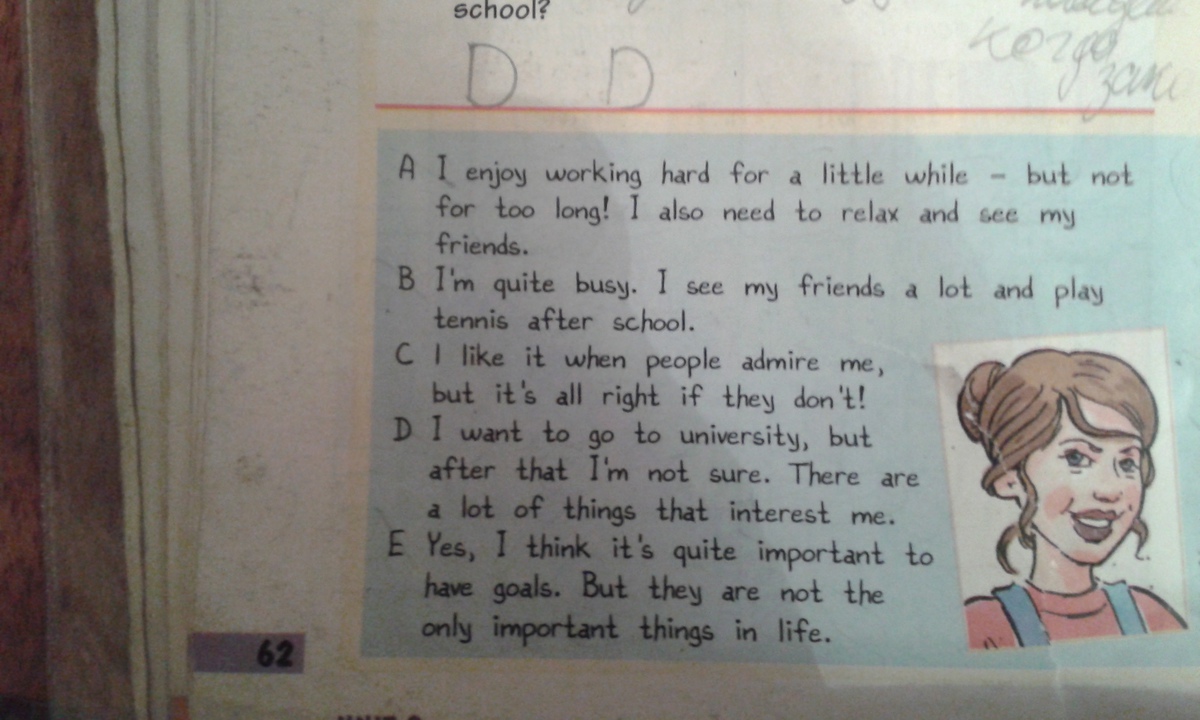 school?
когда
D D
A I enjoy working hard for a little while – but not
for too long! I also need to relax and see my
friends.
B I'm quite busy. I see my friends a lot and play
tennis after school.
C I like it when people admire me,
but it's all right if they don't!
D I want to go to university, but
after that I'm not sure. There are
a lot of things that interest me.
E Yes, I think it's quite important to
have goals. But they are not the
only important things in life.
62